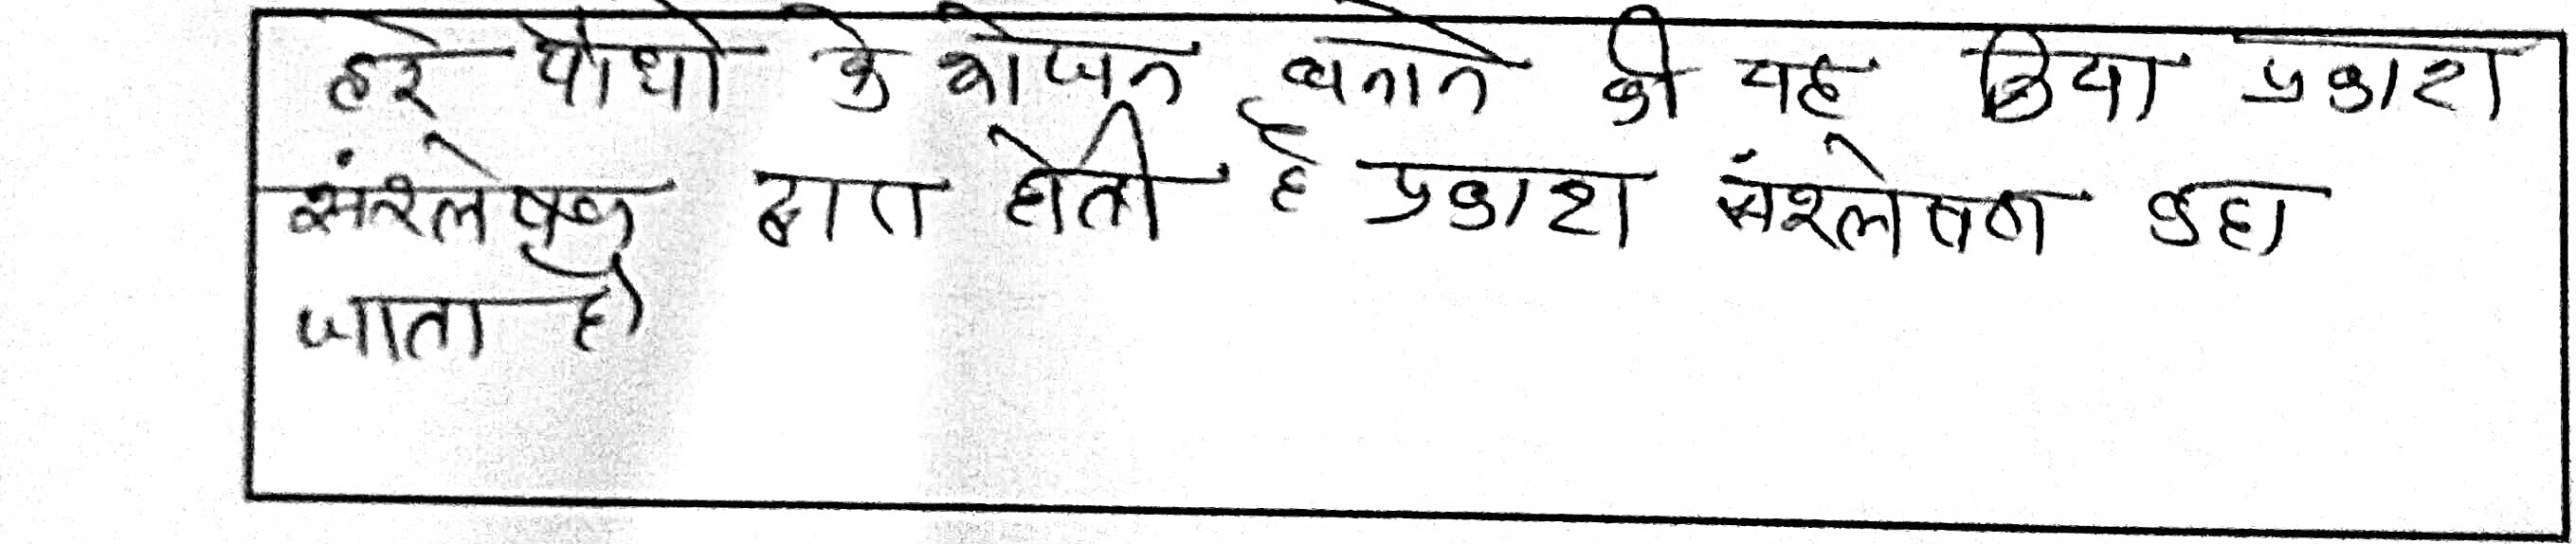 हरे पौधो के भोजन बनाने की यह क्रिया प्रकाश
संश्लेषण द्वारा होती है प्रकाश संश्लेषण कहा
जाता हो